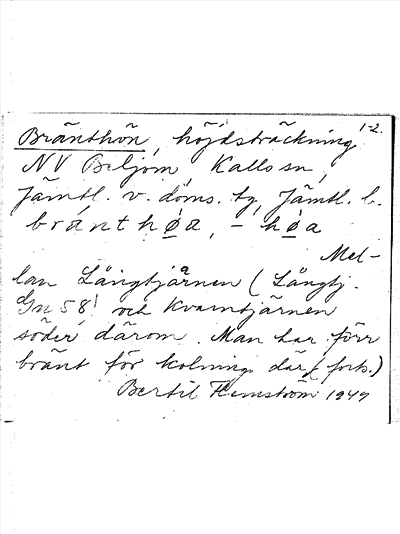 1-2.
Bränthön, höjdsträckning
NV Beljom, Kalls sn,
Jämtl. v. doms. tg, Jämtl. l.
bránthø̀a, -hø̀a
Mel-
lan Långtjärnen (Långtj.
Gn 58! och Kvarntjärnen
söder därom. Man har förr
bränt för kolning där (forts.)
Bertil Flemström 1947